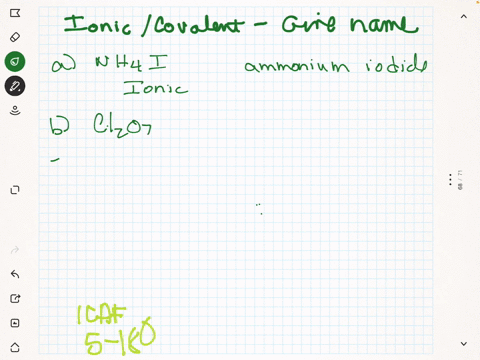 Ionic / Covalent - Give name
a) NH4I ammonium iodide
Ionic
b) Cl2O7
5-180